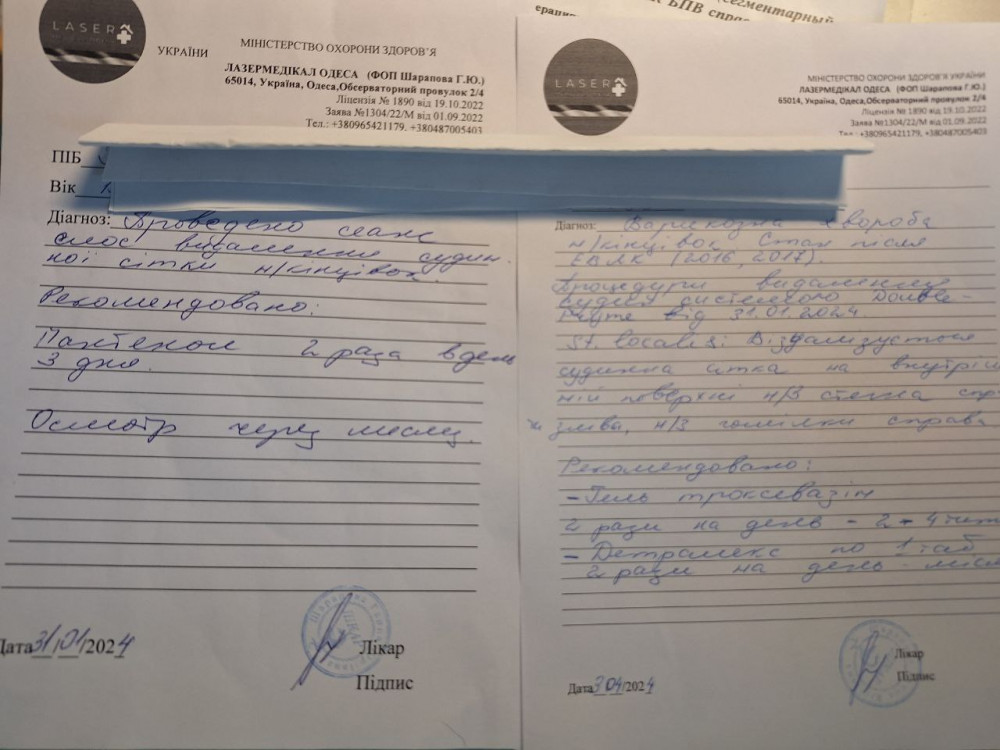 сегментарный
БПВ
LASER
МІНІСТЕРСТВО ОХОРОНИ ЗДОРОВ'Я
УКРАЇНИ
ЛАЗЕРМЕДІКАЛ ОДЕСА (ФОП Шарапова Г.Ю.)
65014, Україна, Одеса,Обсерваторний провулок 2/4
Ліцензія № 1890 від 19.10.2022
Заява №1304/22/М від 01.09.2022
Тел.: +380965421179, +380487005403
ПІБ
Вік
Діагноз: Проведено сеанс
видалення судин.
ної сітки н/кінцівок.
Рекомендовано:
Пантенол 2 раза в день
3 дня.
Осмотр через месяц.
Дата 31/01/2024
Лікар
Підпис
LASER
МІНІСТЕРСТВО ОХОРОНИ ЗДОРОВ'Я УКРАЇНИ
ЛАЗЕРМЕДІКАЛ ОДЕСА (ФОП Шарапова Г.Ю.)
65014, Україна, Одеса,Обсерваторний провулок 2/4
Ліцензія № 1890 від 19.10.2022
Заява №1304/22/М від 01.09.2022
Тел.: +380965421179, +380487005403
Діагноз: Варикозна хвороба
н/кінцівок Стан після
ЕВЛК (2016, 2017).
Процедури видалення
судин системою Double-
від 31.01.2024.
St. localis: Візуалізується
судинна сітка на внутріш
ній поверхні н/з стегна спр
зліва, н/з гомілки справа
Рекомендовано:
- Гель троксевазін
2 рази на день - 2-4 тиж
- Детралекс по 1 таб
2 рази на день - міся
Дата 3 04/2024
Лікар
Підпис